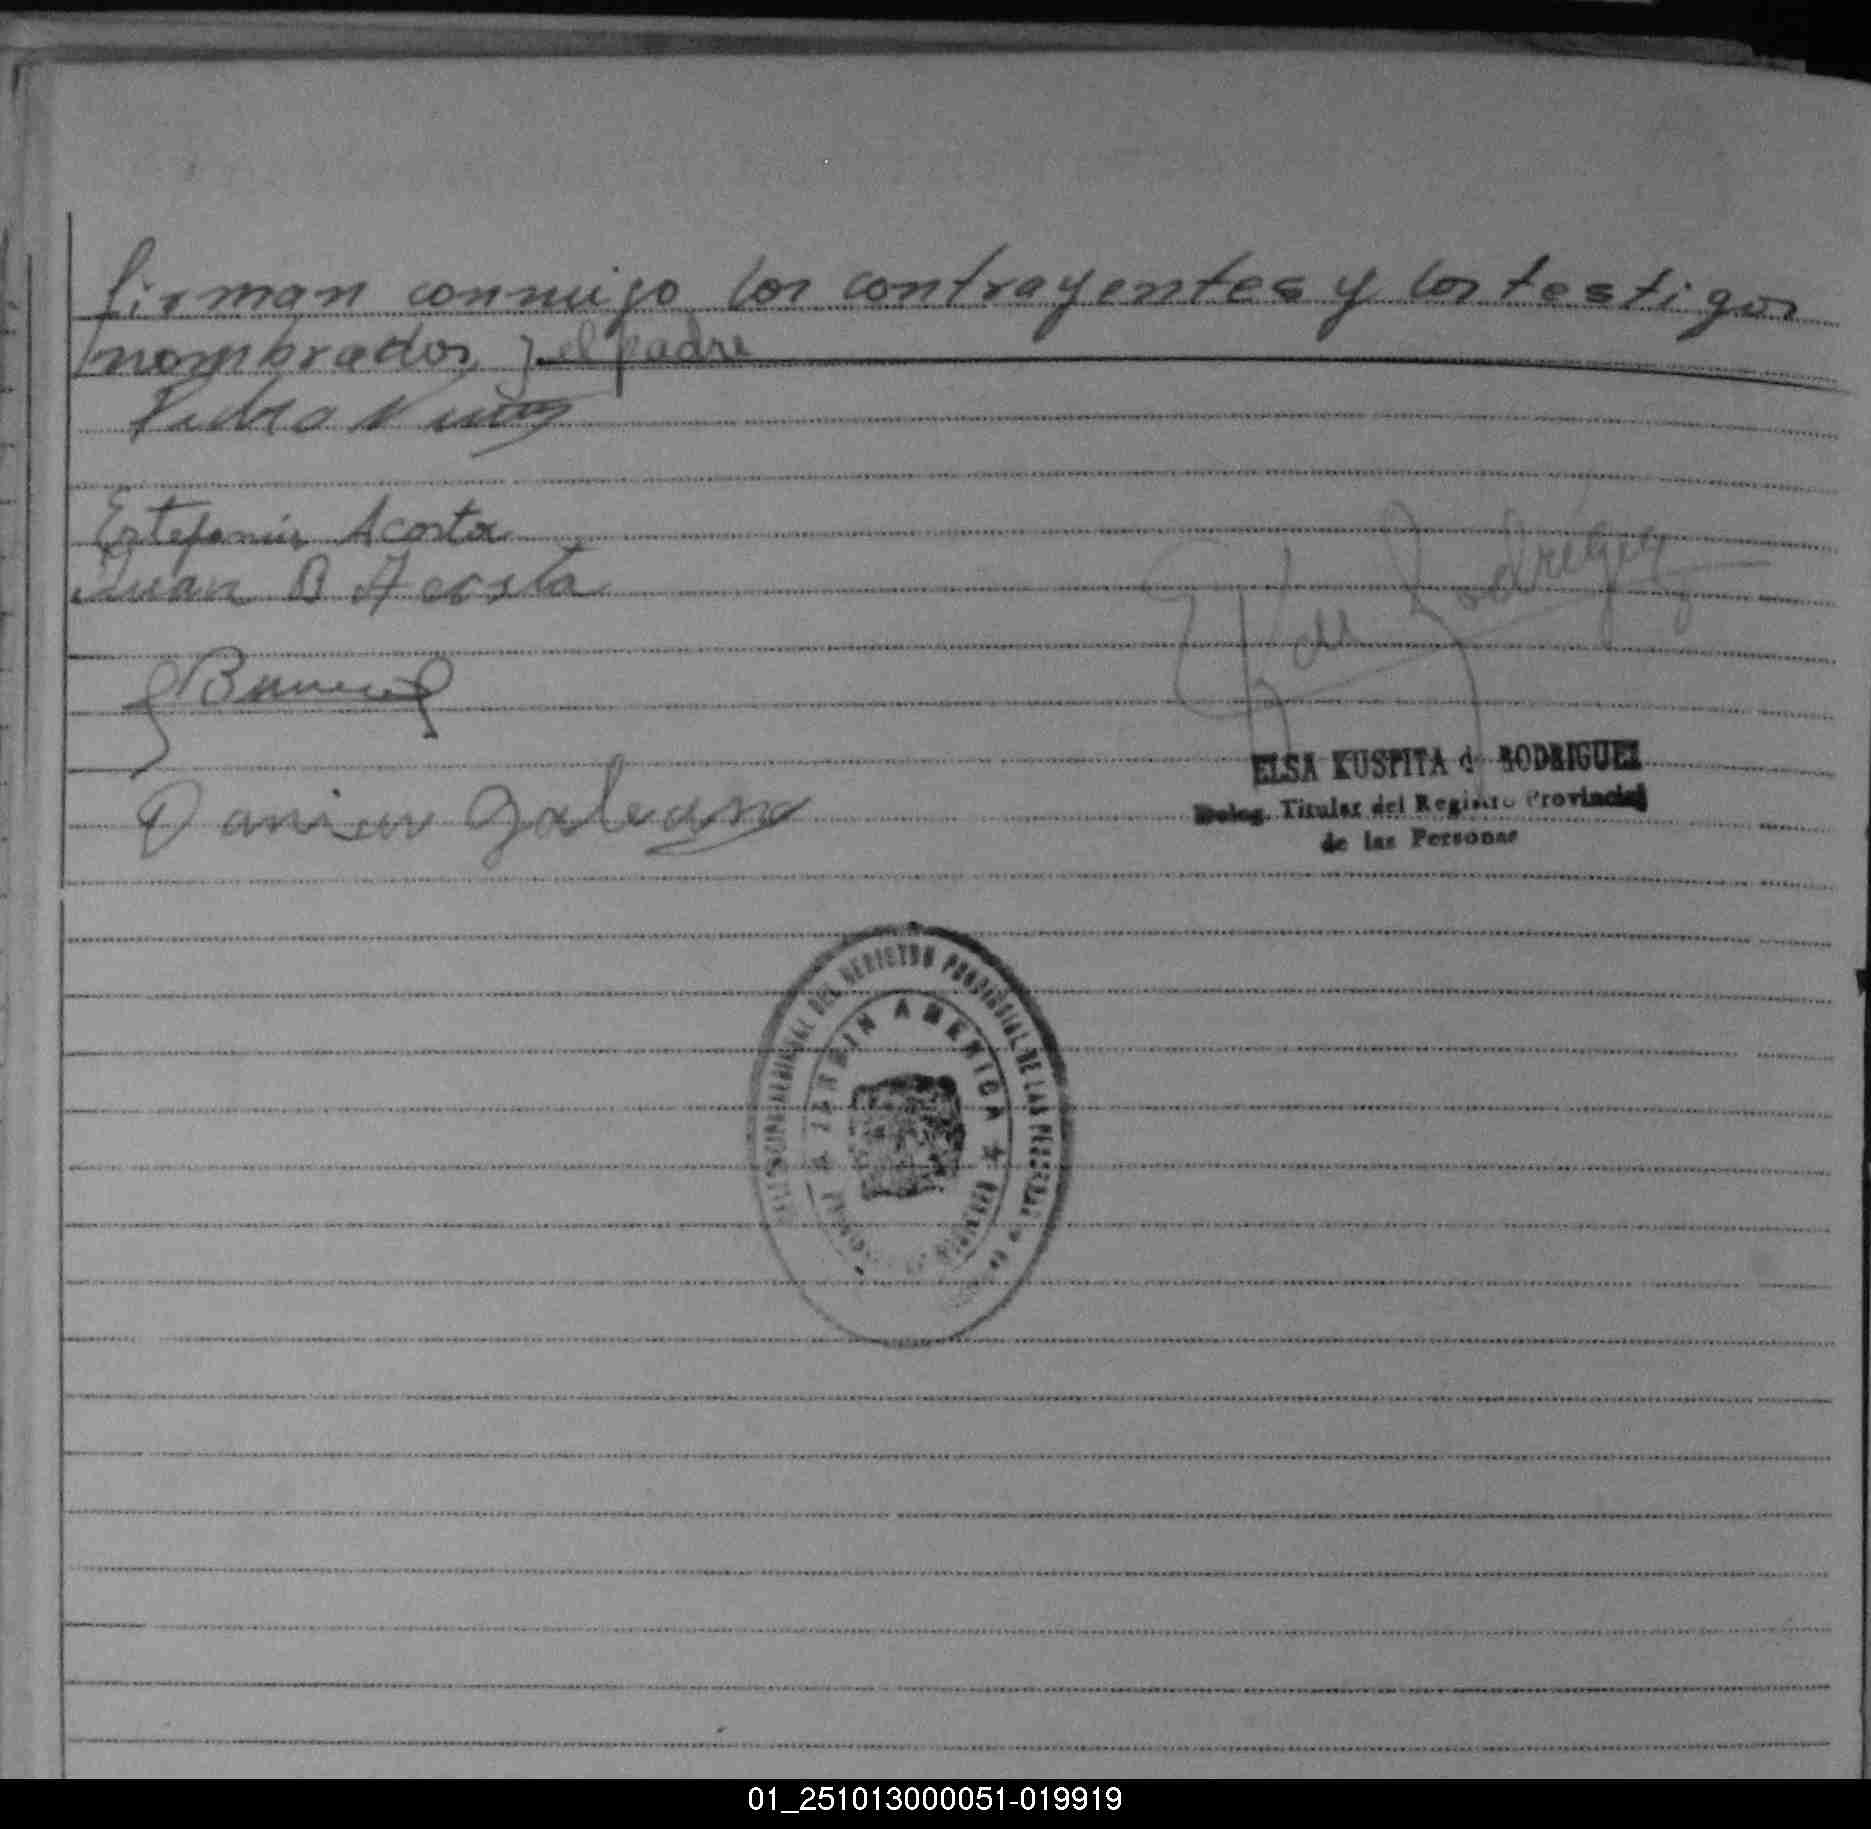 firman conmigo los contrayentes y los testigos
nombrados, y el padre
Pedro
Estefania Acosta
Juan B Acosta
Rodríguez
ELSA KUSPITA d RODRIGUEZ
Deleg. Titular del Registro Provincial
de las Personas
Galeano
DEL REGISTRO PROVINCIAL DE LAS PERSONAS
JARDIN AMERICA
01_251013000051-019919